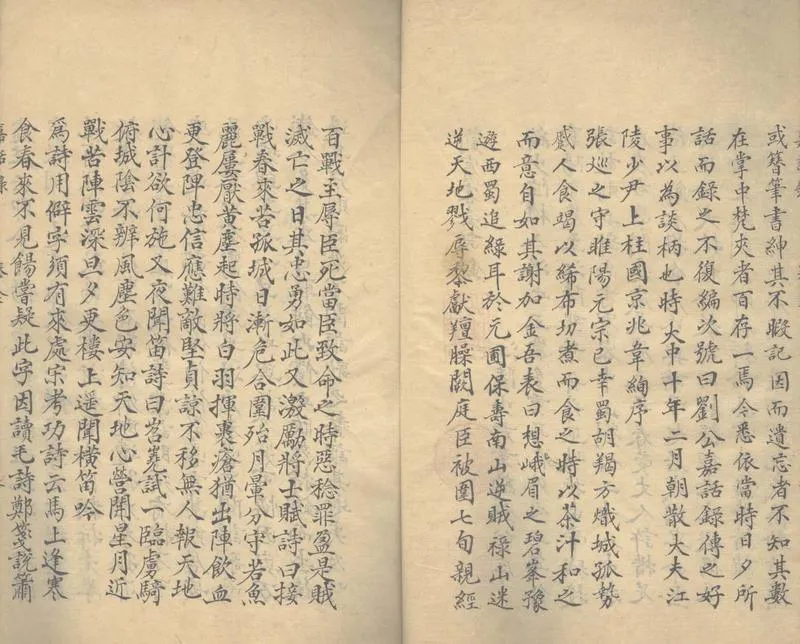 或簪筆書紳其不暇記因而遺忘者不知其數
在掌中梵夾者百存一焉今悉依當時日夕所
話而錄之不復編次號曰劉公嘉話錄傳之好
事以為談柄也時大中十年二月朝散大夫江
陵少尹上柱國京兆韋絢序
張巡之守睢陽元宗已幸蜀胡羯方熾城孤勢
蹙人食竭以綈布切煮而食之時以茶汁和之
而意自如其謝加金吾表曰想峨眉之碧峯豫
遊西蜀追綠耳於元圃保壽南山逆賊祿山迷
逆天地戮辱黎獻羶臊闕庭臣被圍七旬親經
百戰主辱臣死當臣致命之時惡稔罪盈是賊
滅亡之日其忠勇如此又激勵將士賦詩曰接
戰春來苦孤城日漸危合圍殆月暈分守若魚
麗屢厭黃塵起時將白羽揮裹瘡猶出陣飲血
更登陴忠信應難敵堅貞諒不移無人報天地
心計欲何施又夜聞笛詩曰岧嶤試一臨虜騎
俯城陰不辨風塵色安知天地心營開星月近
戰苦陣雲深旦夕更樓上遥聞橫笛吟
為詩用僻字須有來處宋考功詩云馬上逢寒
食春來不見餳嘗疑此字因讀毛詩鄭箋說簫